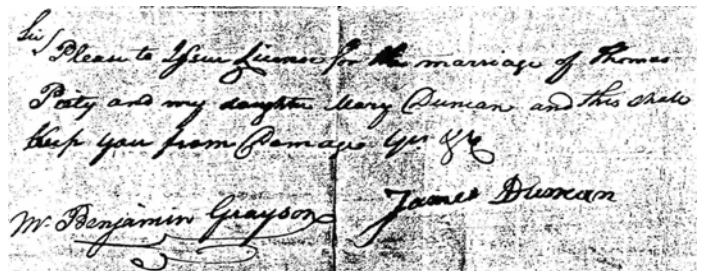 Sir
Please to Issue Licence for the marriage of Thomas
Posty and my daughter Mary Duncan and this shall
keep you from Damage Yrs &c
James Duncan
Mr. Benjamin Grayson